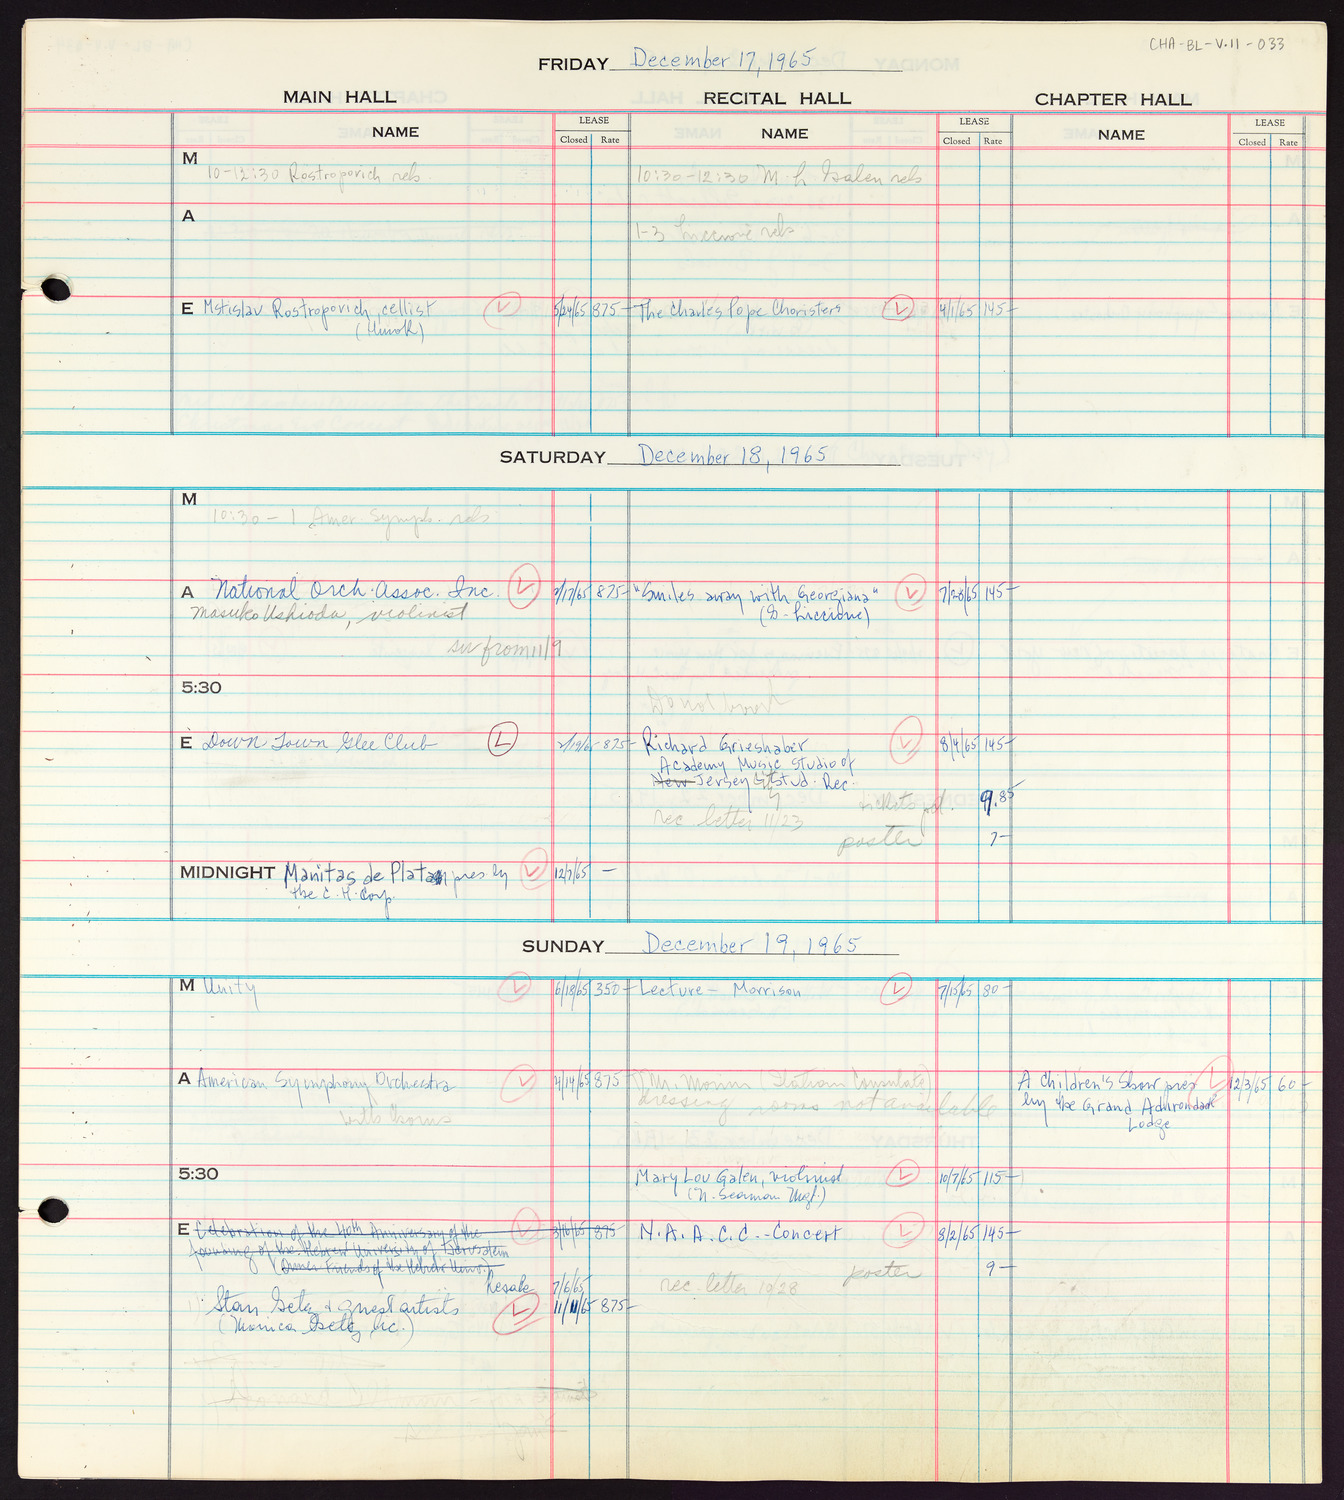 CHA-BL-V.11-033
FRIDAY December 17, 1965
MAIN HALL RECITAL HALL CHAPTER HALL
NAME LEASE Closed Rate NAME LEASE Closed Rate NAME LEASE Closed Rate
M
10-12:30 Rostropovich reh 10:30-12:30 M. L. Galen reh
A
1-3 Liccione reh
E Mstislav Rostropovich, cellist L 5/24/65 875- The Charles Pope Choristers L 4/1/65 145-
(Hurok)
SATURDAY December 18, 1965
M
10:30-1 Amer. Symph. reh
A National Orch. Assoc. Inc. L 2/17/65 875- "Smiles away with Georgiana" L 7/28/65 145-
Masuko Ushioda, violinist (G. Liccione)
sw from 11/9
5:30
E Down Town Glee Club L 2/19/65 875- Richard Grieshaber L 8/4/65 145-
Academy Music Studio of
New Jersey Stud. Rec.
tickets pd. 9.85
rec. letter 11/23
poster 7-
MIDNIGHT Manitas de Plata pres by L 12/7/65 -
the C. H. Corp.
SUNDAY December 19, 1965
M Unity L 6/18/65 350- Lecture - Morrison L 7/15/65 80-
A American Symphony Orchestra L 4/14/65 875- (Mr. Italian Consulate) A Children's Show pres L 12/3/65 60-
dressing rooms not available by the Grand Adirondack
Lodge
5:30 Mary Lou Galen, violinist L 10/7/65 115-
(N. Seaman Mgt.)
E Celebration of the 40th Anniversary of the L 3/16/65 875- N.A.A.C.C.-Concert L 8/2/65 145-
founding of the Hebrew University of Jerusalem
(Amer. Friends of the Hebrew Univ.) poster 9-
Resale 7/6/65 rec. letter 10/28
Stan Getz & guest artists L 11/11/65 875-
(Monica Getz, Inc.)